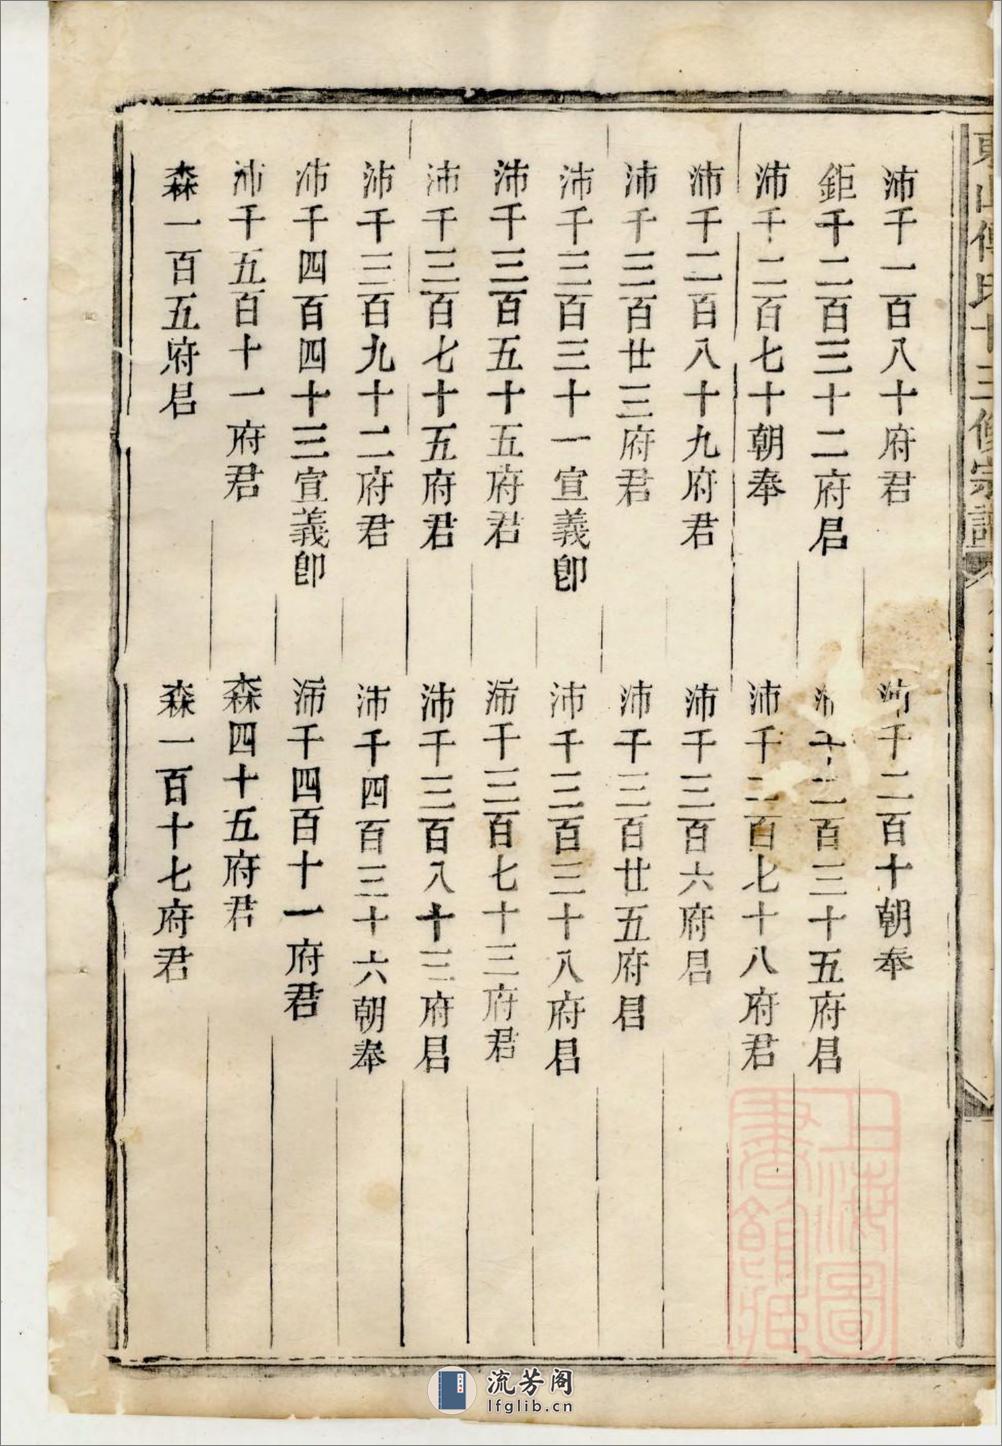 東山傅氏十三修宗譜
沛千一百八十府君
沛千二百十朝奉
鉅千二百三十二府君
沛千二百三十五府君
沛千二百七十朝奉
沛千二百七十八府君
沛千二百八十九府君
沛千三百六府君
沛千三百廿三府君
沛千三百廿五府君
沛千三百三十一宣義郎
沛千三百三十八府君
沛千三百五十五府君
沛千三百七十三府君
沛千三百七十五府君
沛千三百八十三府君
沛千三百九十二府君
沛千四百三十六朝奉
沛千四百四十三宣義郎
沛千四百十一府君
沛千五百十一府君
森四十五府君
森一百五府君
森一百十七府君
上海圖
書館藏
流芳阁
lfglib.cn